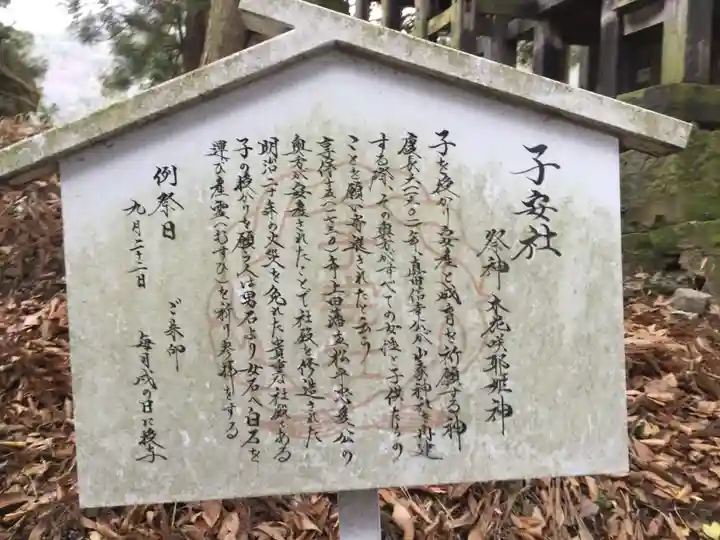 子安社
祭神 木花咲耶姫神
子を授かり安産と成育を祈願する神
慶長六(一六〇一)年、真田信幸公が山家神社を再建
する際、その奥方がすべての女性と子供たちの
ことを願い寄進されたと云う
享保十五(一七三〇)年上田藩主松平忠愛公の
奥方が安産されたことで社殿を修造された
明治二十年の火災を免れた貴重な社殿である
子の授かりを願う人は男石より女石へ白石を
運び産霊(むすひ)を祈り参拝をする
例祭日
九月二十二日
ご朱印
毎月戌の日に授与